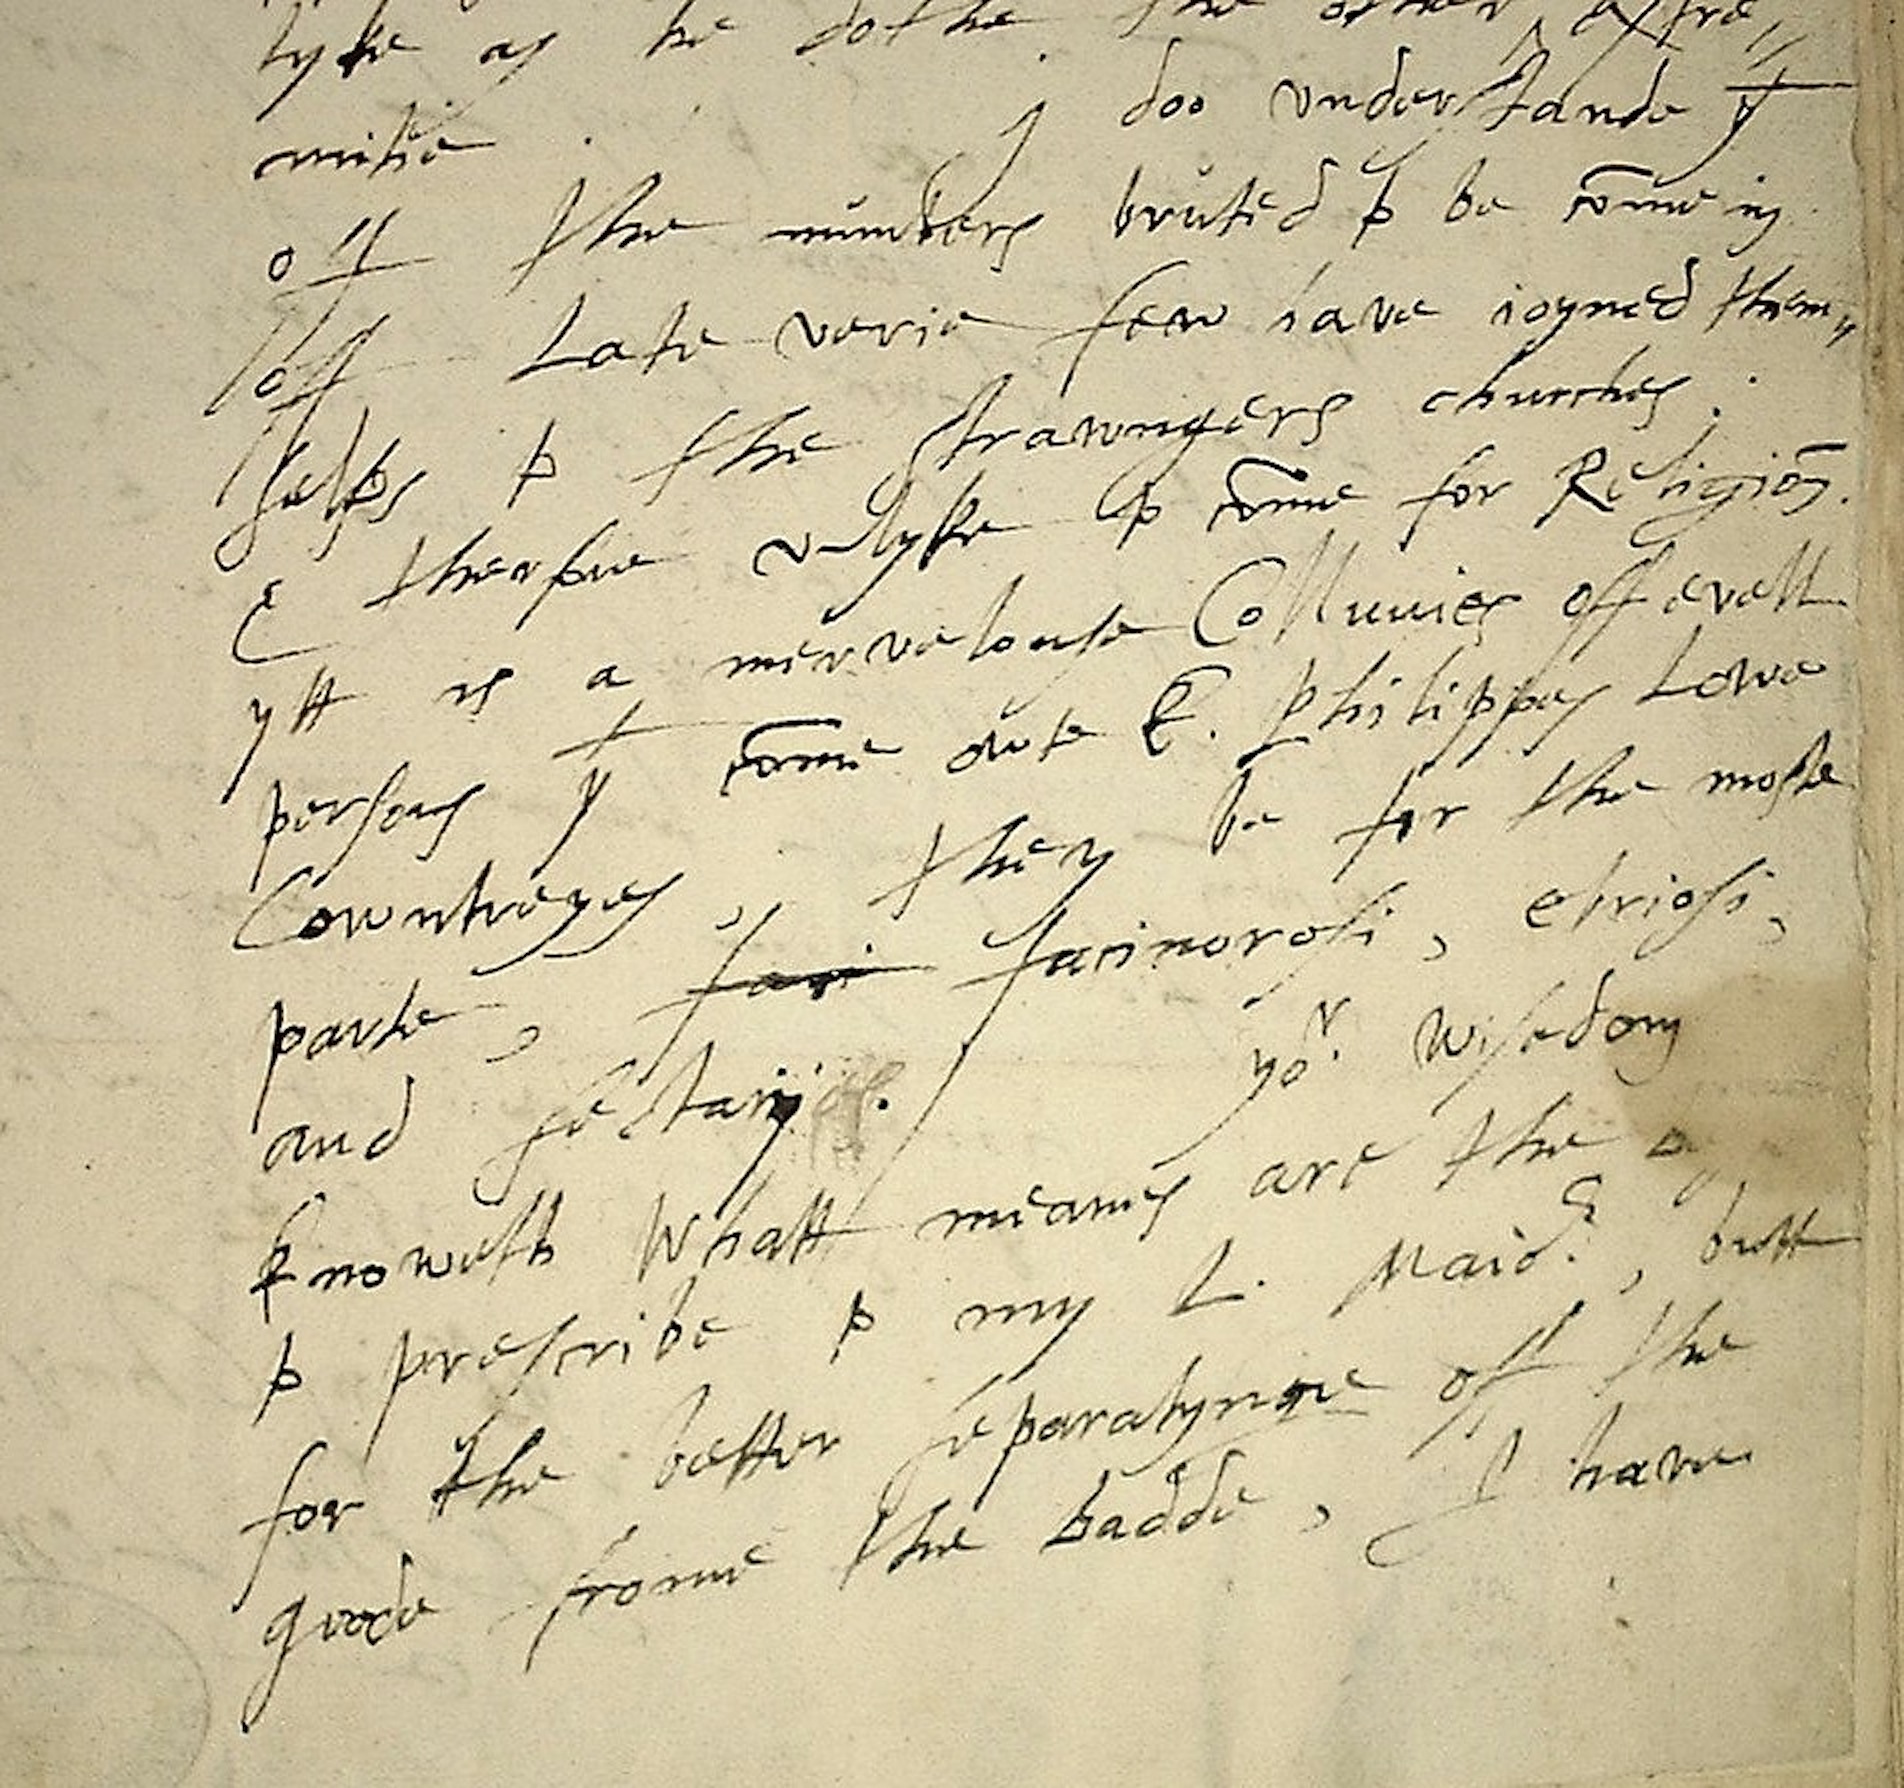 lyke as he dothe the other extre„
mitie . I doo understande yt
off the numbers bruted to be come in
off Late verie few have ioyned them„
selfs to the strawngers churches.
& therfore vnlyke to come for Religion.
ytt is a mervelouse Colluuies off evell
persons yt come oute K. Philippes Lowe
Cowntreyes, they be for the moste
parte, faci facinorosi, ebriosi,
and sectarij. yor. wisedom
knoweth whatt meanes are the
to prescribe to my L. Maior, butt
for the better separatynge off the
goode frome the badde, I have